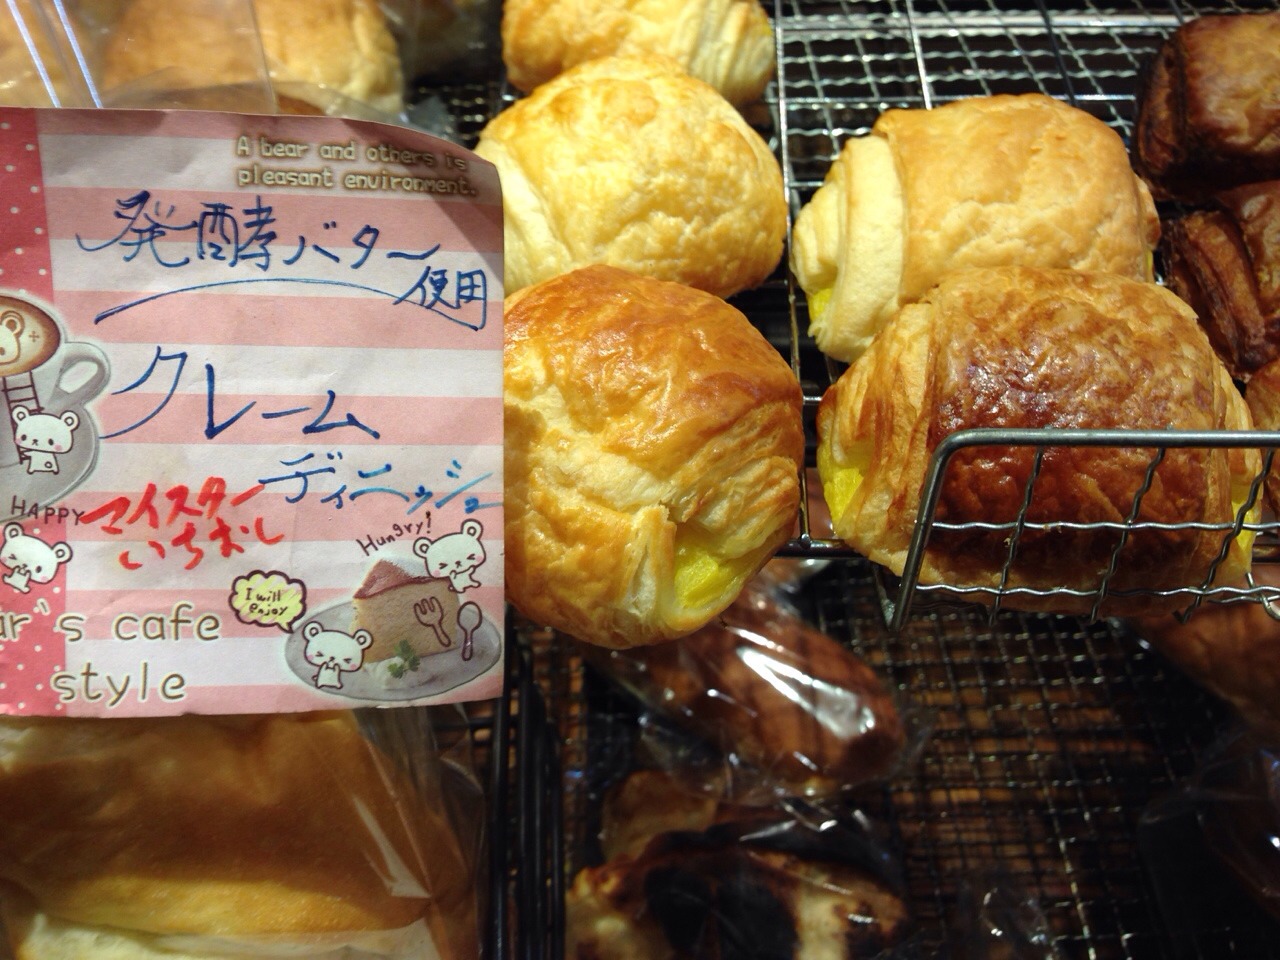 A bear and others is
pleasant environment.
発酵バター
使用
クレーム
ディニッシュ
マイスター
いちおし
HAPPY
Hungry!
I will
enjoy
ar's cafe
style